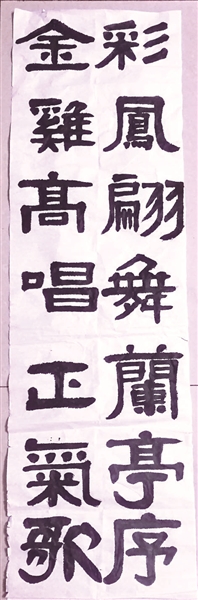 彩鳳翩舞蘭亭序
金雞高唱正氣歌